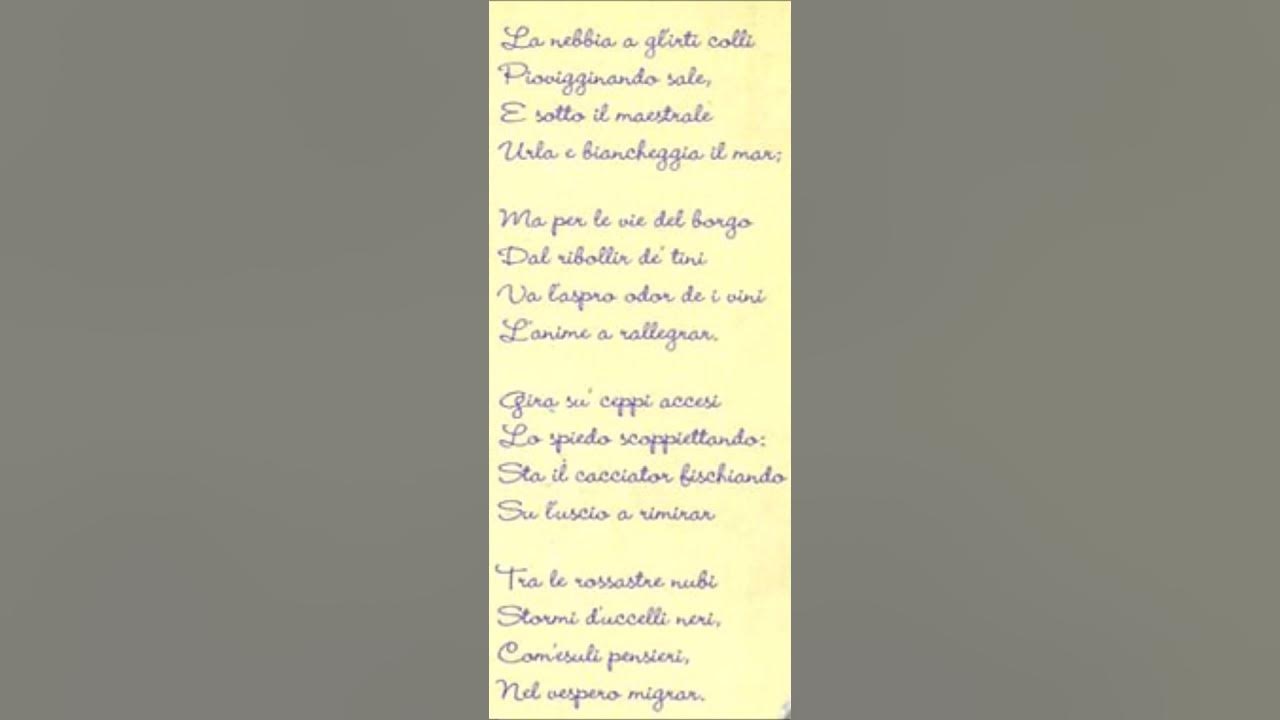 La nebbia a gl'irti colli
Piovigginando sale,
E sotto il maestrale
Urla e biancheggia il mar;
Ma per le vie del borgo
Dal ribollir de' tini
Va l'aspro odor de i vini
L'anime a rallegrar.
Gira su' ceppi accesi
Lo spiedo scoppiettando:
Sta il cacciator fischiando
Su l'uscio a rimirar
Tra le rossastre nubi
Stormi d'uccelli neri,
Com'esuli pensieri,
Nel vespero migrar.